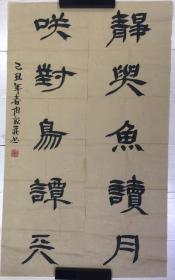 静與魚讀月
咲對鳥譚天
己丑年春